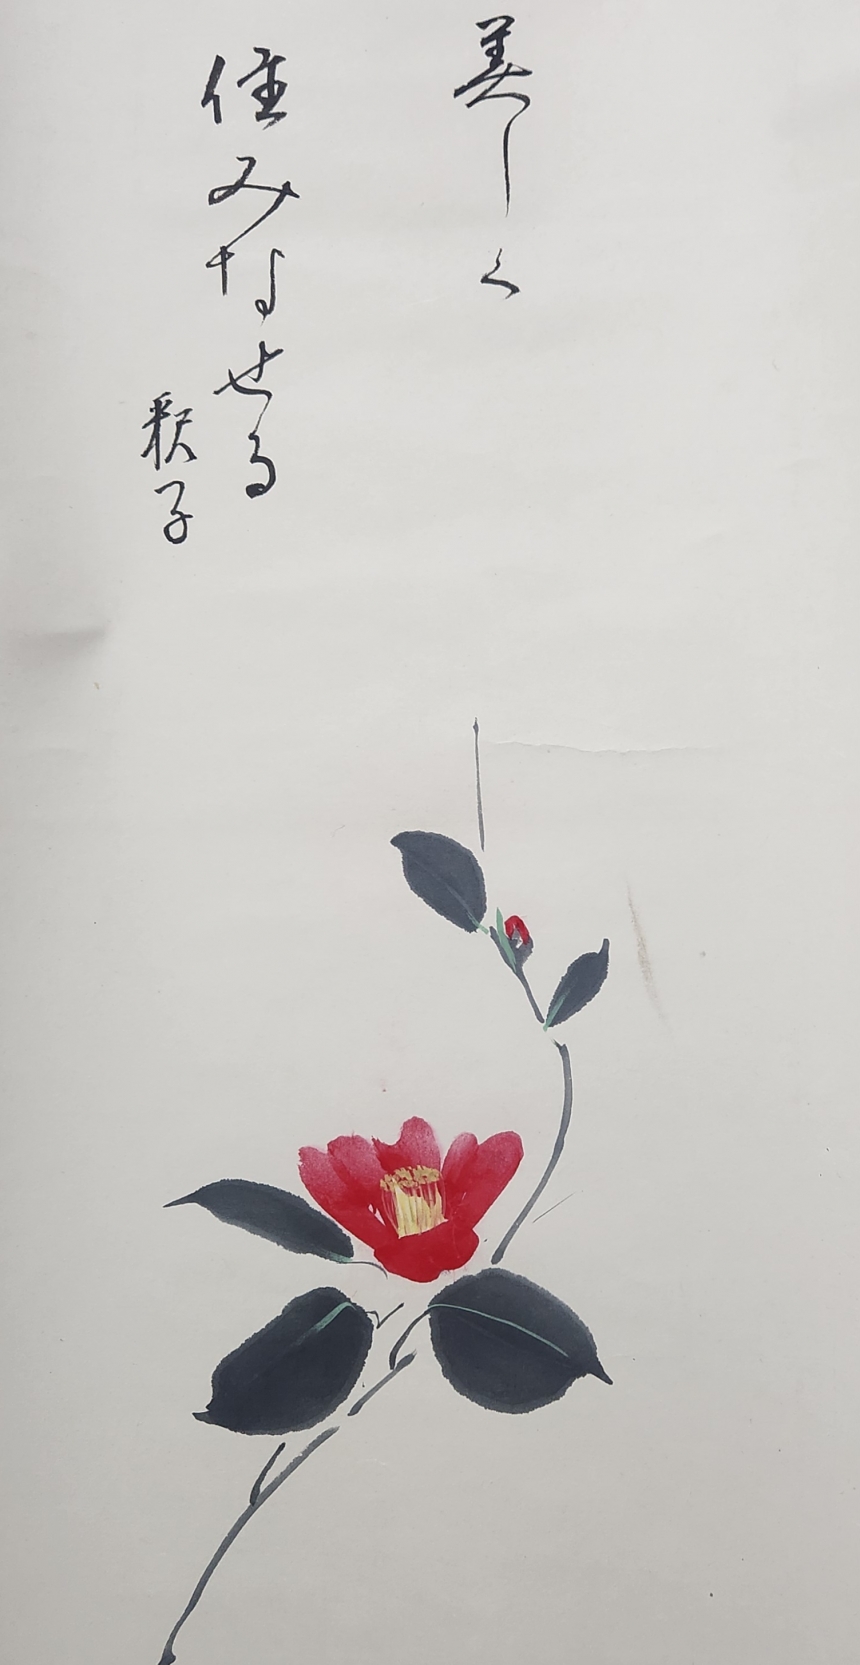 美しく
住みなせる
釈子